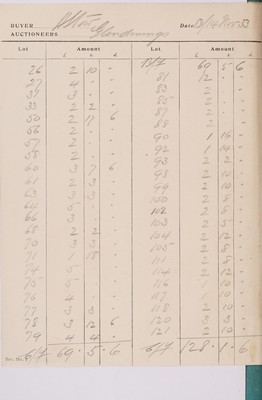 BUYER
AUCTIONEERS Glendinings Date 13/14 Nov 33
Lot Amount Lot Amount
£ s d £ s d
26 2 10 - B/f 69 5 6
27 4 - - 81 12 -
31 3 - - 83 2 - -
33 2 2 - 85 2 - -
50 2 17 6 87 2 - -
56 2 - - 88 2 - -
57 2 - - 90 1 16 -
58 2 - - 92 1 14 -
60 3 7 6 93 2 2 -
61 2 3 - 98 2 10 -
63 3 3 - 99 2 10 -
64 5 - - 100 2 8 -
66 3 - - 102 2 8 -
68 2 2 - 103 2 5 -
70 3 3 - 104 2 12 -
71 1 18 - 105 2 8 -
74 5 - - 111 2 8 -
75 5 - - 114 2 12 -
76 4 - - 116 1 10 -
77 3 3 - 117 1 10 -
78 3 12 6 118 2 10 -
79 4 4 - 120 3 3 -
121 2 10 -
C/f 69 . 5 . 6 C/f 128 . 1 . 6